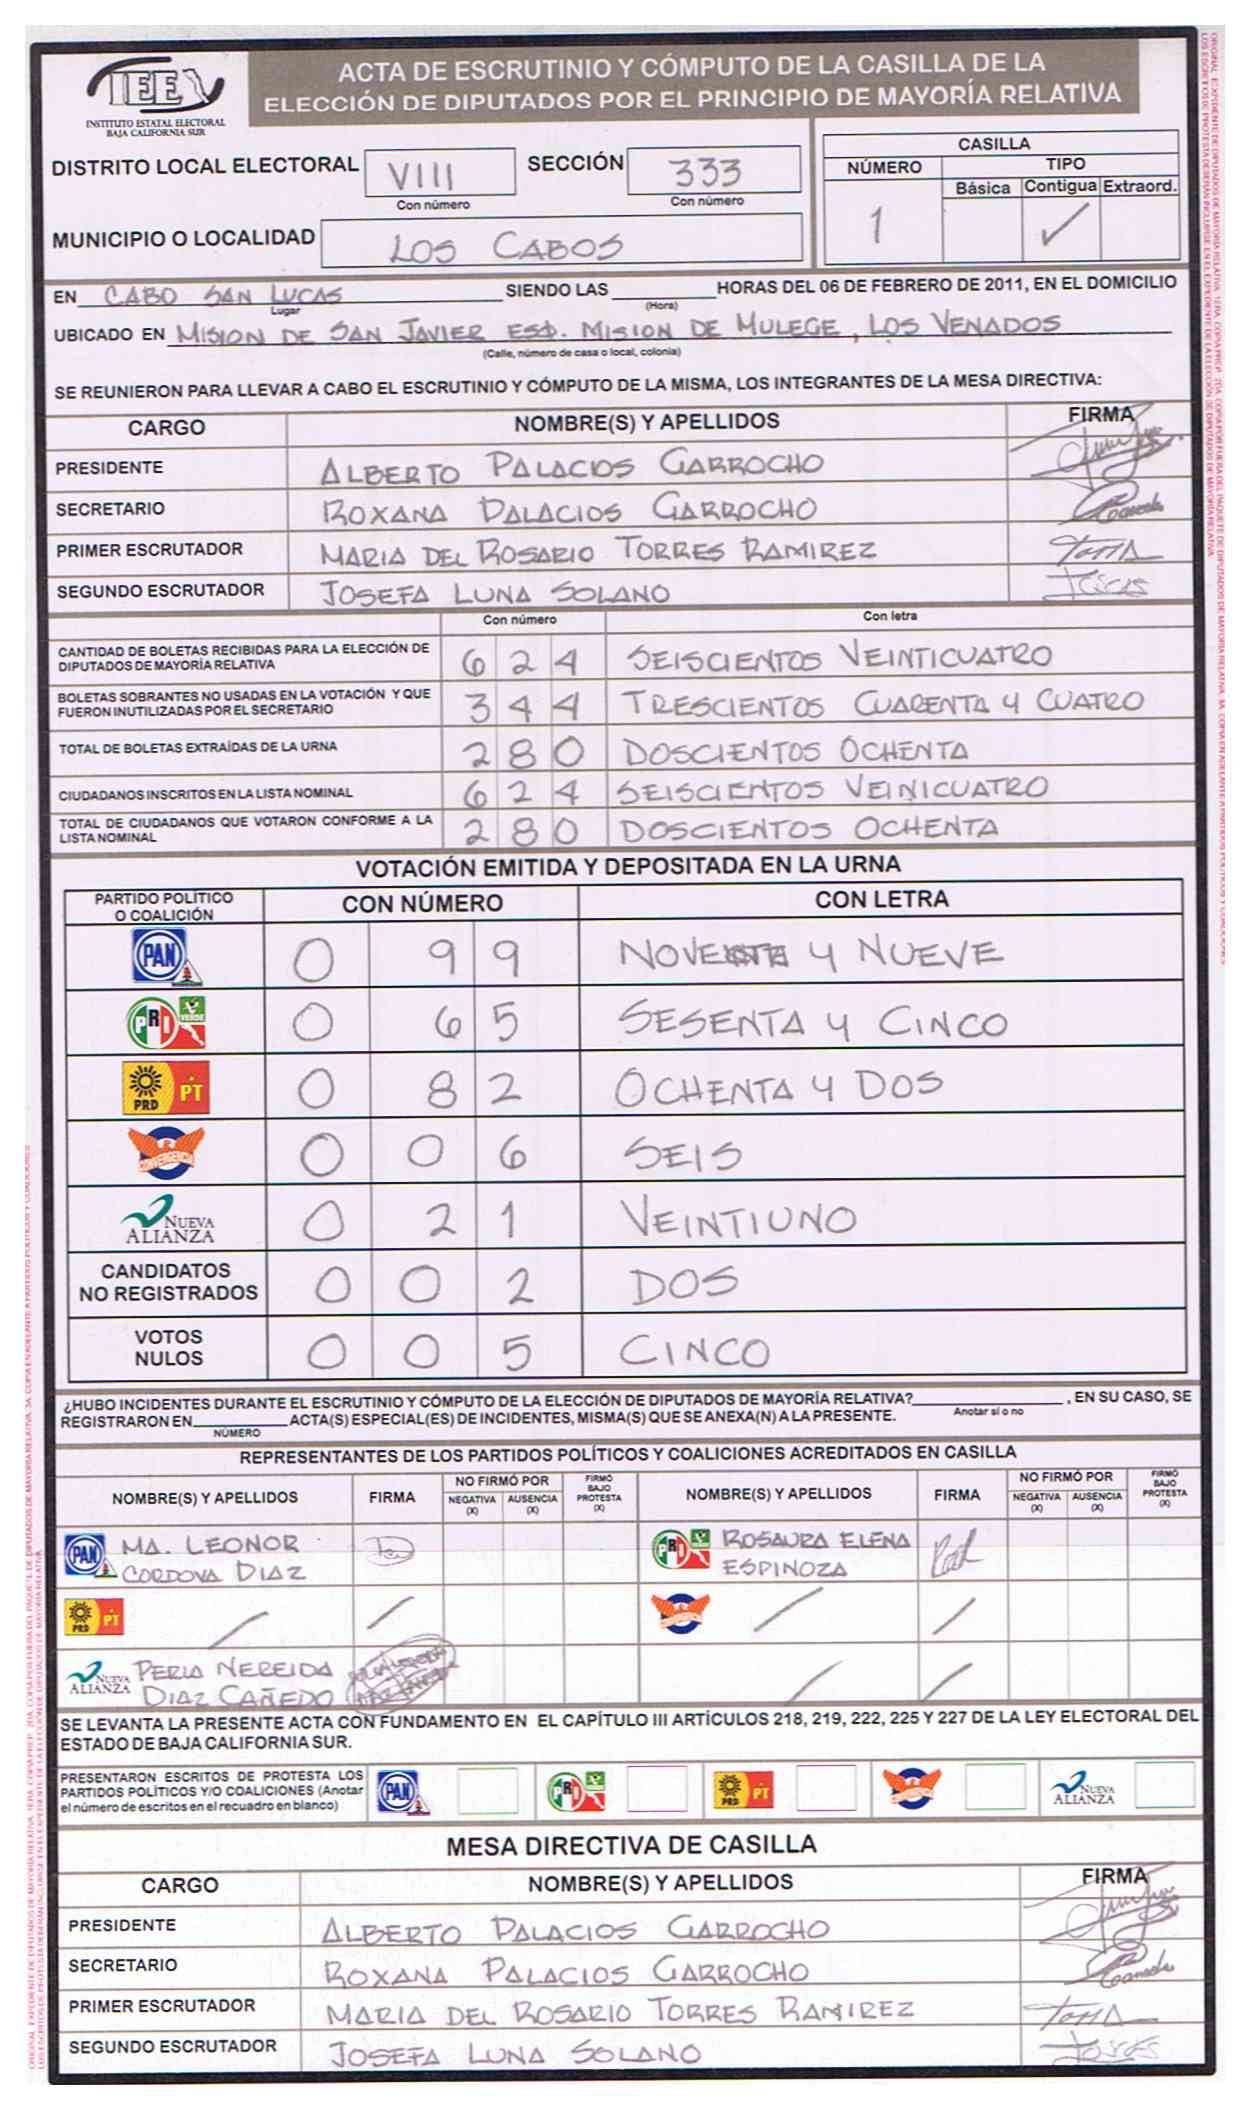 IEE
INSTITUTO ESTATAL ELECTORAL
BAJA CALIFORNIA SUR
ACTA DE ESCRUTINIO Y CÓMPUTO DE LA CASILLA DE LA
ELECCIÓN DE DIPUTADOS POR EL PRINCIPIO DE MAYORÍA RELATIVA
DISTRITO LOCAL ELECTORAL VIII SECCIÓN 333
Con número Con número
MUNICIPIO O LOCALIDAD LOS CABOS
CASILLA
NÚMERO TIPO
Básica Contigua Extraord.
1 ✓
EN CABO SAN LUCAS SIENDO LAS HORAS DEL 06 DE FEBRERO DE 2011, EN EL DOMICILIO
Lugar (Hora)
UBICADO EN MISION DE SAN JAVIER ESQ. MISION DE MULEGE, LOS VENADOS
(Calle, número de casa o local, colonia)
SE REUNIERON PARA LLEVAR A CABO EL ESCRUTINIO Y CÓMPUTO DE LA MISMA, LOS INTEGRANTES DE LA MESA DIRECTIVA:
CARGO NOMBRE(S) Y APELLIDOS FIRMA
PRESIDENTE ALBERTO PALACIOS GARROCHO
SECRETARIO ROXANA PALACIOS GARROCHO
PRIMER ESCRUTADOR MARIA DEL ROSARIO TORRES RAMIREZ
SEGUNDO ESCRUTADOR JOSEFA LUNA SOLANO
Con número Con letra
CANTIDAD DE BOLETAS RECIBIDAS PARA LA ELECCIÓN DE
DIPUTADOS DE MAYORÍA RELATIVA 624 SEISCIENTOS VEINTICUATRO
BOLETAS SOBRANTES NO USADAS EN LA VOTACIÓN Y QUE
FUERON INUTILIZADAS POR EL SECRETARIO 344 TRESCIENTOS CUARENTA Y CUATRO
TOTAL DE BOLETAS EXTRAÍDAS DE LA URNA 280 DOSCIENTOS OCHENTA
CIUDADANOS INSCRITOS EN LA LISTA NOMINAL 624 SEISCIENTOS VEINICUATRO
TOTAL DE CIUDADANOS QUE VOTARON CONFORME A LA
LISTA NOMINAL 280 DOSCIENTOS OCHENTA
VOTACIÓN EMITIDA Y DEPOSITADA EN LA URNA
PARTIDO POLÍTICO
O COALICIÓN CON NÚMERO CON LETRA
PAN 0 9 9 NOVENTA Y NUEVE
PRI VERDE 0 6 5 SESENTA Y CINCO
PRD PT 0 8 2 OCHENTA Y DOS
CONVERGENCIA 0 0 6 SEIS
NUEVA ALIANZA 0 2 1 VEINTIUNO
CANDIDATOS
NO REGISTRADOS 0 0 2 DOS
VOTOS
NULOS 0 0 5 CINCO
¿HUBO INCIDENTES DURANTE EL ESCRUTINIO Y CÓMPUTO DE LA ELECCIÓN DE DIPUTADOS DE MAYORÍA RELATIVA? , EN SU CASO, SE
Anotar sí o no
REGISTRARON EN ACTA(S) ESPECIAL(ES) DE INCIDENTES, MISMA(S) QUE SE ANEXA(N) A LA PRESENTE.
NÚMERO
REPRESENTANTES DE LOS PARTIDOS POLÍTICOS Y COALICIONES ACREDITADOS EN CASILLA
NOMBRE(S) Y APELLIDOS FIRMA NO FIRMÓ POR NEGATIVA (X) AUSENCIA (X) FIRMÓ BAJO PROTESTA (X) NOMBRE(S) Y APELLIDOS FIRMA NO FIRMÓ POR NEGATIVA (X) AUSENCIA (X) FIRMÓ BAJO PROTESTA (X)
PAN MA. LEONOR CORDOVA DIAZ PRI VERDE ROSAURA ELENA ESPINOZA
PRD PT / / CONVERGENCIA / /
NUEVA ALIANZA PERLA NEREIDA DIAZ CAÑEDO / /
SE LEVANTA LA PRESENTE ACTA CON FUNDAMENTO EN EL CAPÍTULO III ARTÍCULOS 218, 219, 222, 225 Y 227 DE LA LEY ELECTORAL DEL
ESTADO DE BAJA CALIFORNIA SUR.
PRESENTARON ESCRITOS DE PROTESTA LOS
PARTIDOS POLÍTICOS Y/O COALICIONES (Anotar
el número de escritos en el recuadro en blanco)
PAN PRI VERDE PRD PT CONVERGENCIA NUEVA ALIANZA
MESA DIRECTIVA DE CASILLA
CARGO NOMBRE(S) Y APELLIDOS FIRMA
PRESIDENTE ALBERTO PALACIOS GARROCHO
SECRETARIO ROXANA PALACIOS GARROCHO
PRIMER ESCRUTADOR MARIA DEL ROSARIO TORRES RAMIREZ
SEGUNDO ESCRUTADOR JOSEFA LUNA SOLANO